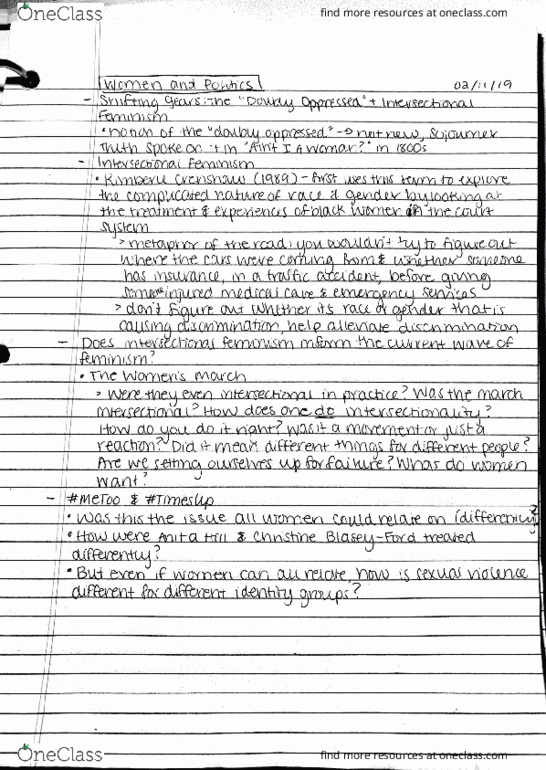 OneClass
find more resources at oneclass.com
Women and Politics
02/11/19
- Shifting Gears: The "Doubly Oppressed" + Intersectional
Feminism
• notion of the "doubly oppressed" → not new, Sojourner
Truth spoke on it in "Ain't I A Woman?" in 1800s
- Intersectional Feminism
• Kimberle Crenshaw (1989) - first uses this term to explore
the complicated nature of race & gender by looking at
the treatment & experiences of black women in the court
system
> metaphor of the road: you wouldn't try to figure out
where the cars were coming from & whether someone
has insurance, in a traffic accident, before giving
some injured medical care & emergency services
> don't figure out whether its race or gender that is
causing discrimination, help alleviate discrimination
- Does intersectional feminism inform the current wave of
feminism?
• The Women's March
> Were they even intersectional in practice? Was the march
intersectional? How does one do intersectionality?
How do you do it right? Was it a movement or just a
reaction? Did it mean different things for different people?
Are we setting ourselves up for failure? What do women
want?
- #MeToo & #TimesUp
• Was this the issue all women could relate on (differently)?
• How were Anita Hill & Christine Blasey-Ford treated
differently?
• But even if women can all relate, how is sexual violence
different for different identity groups?
OneClass
find more resources at oneclass.com